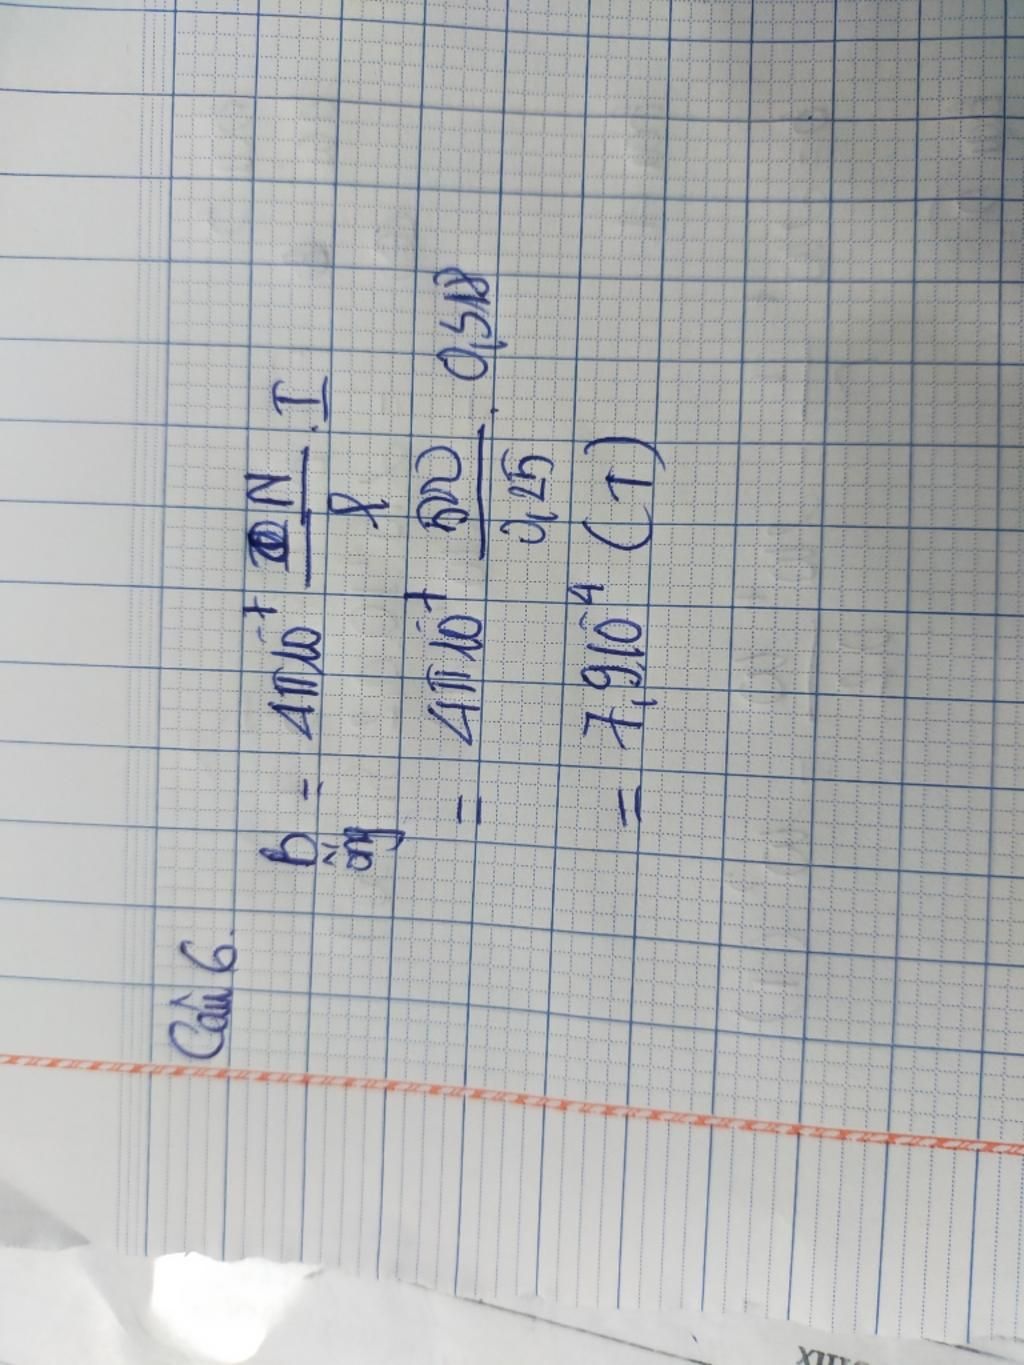 Câu 6.
B ống = 4π10⁻⁷ N/ℓ . I
= 4π10⁻⁷ 0,25 . 0,518
= 7,910⁻⁴ (T)